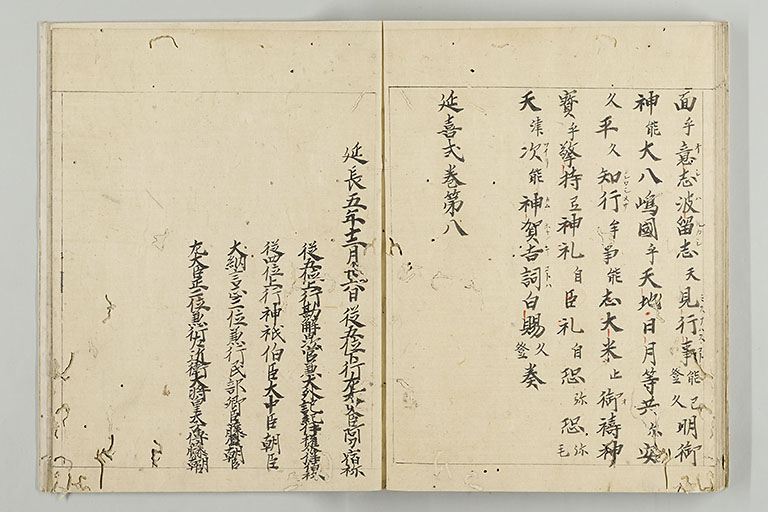 面乎意志波留志天見行事能己登久明御
神能大八嶋國乎天地日月等共尓安
久平久知行牟事能志太米止御禱神
寶乎擎持弖神礼自臣礼自恐弥恐弥毛
天津次能神賀吉詞白賜久登奏
延喜式巻第八
延長五年十二月廿六日
従五位上行勘解由次官兼大外記紀
従四位上行神祇伯臣大中臣朝臣
大納言正三位兼行民部卿臣藤原朝臣
左大臣正二位兼行左近衛大将皇太子傅臣藤原朝臣